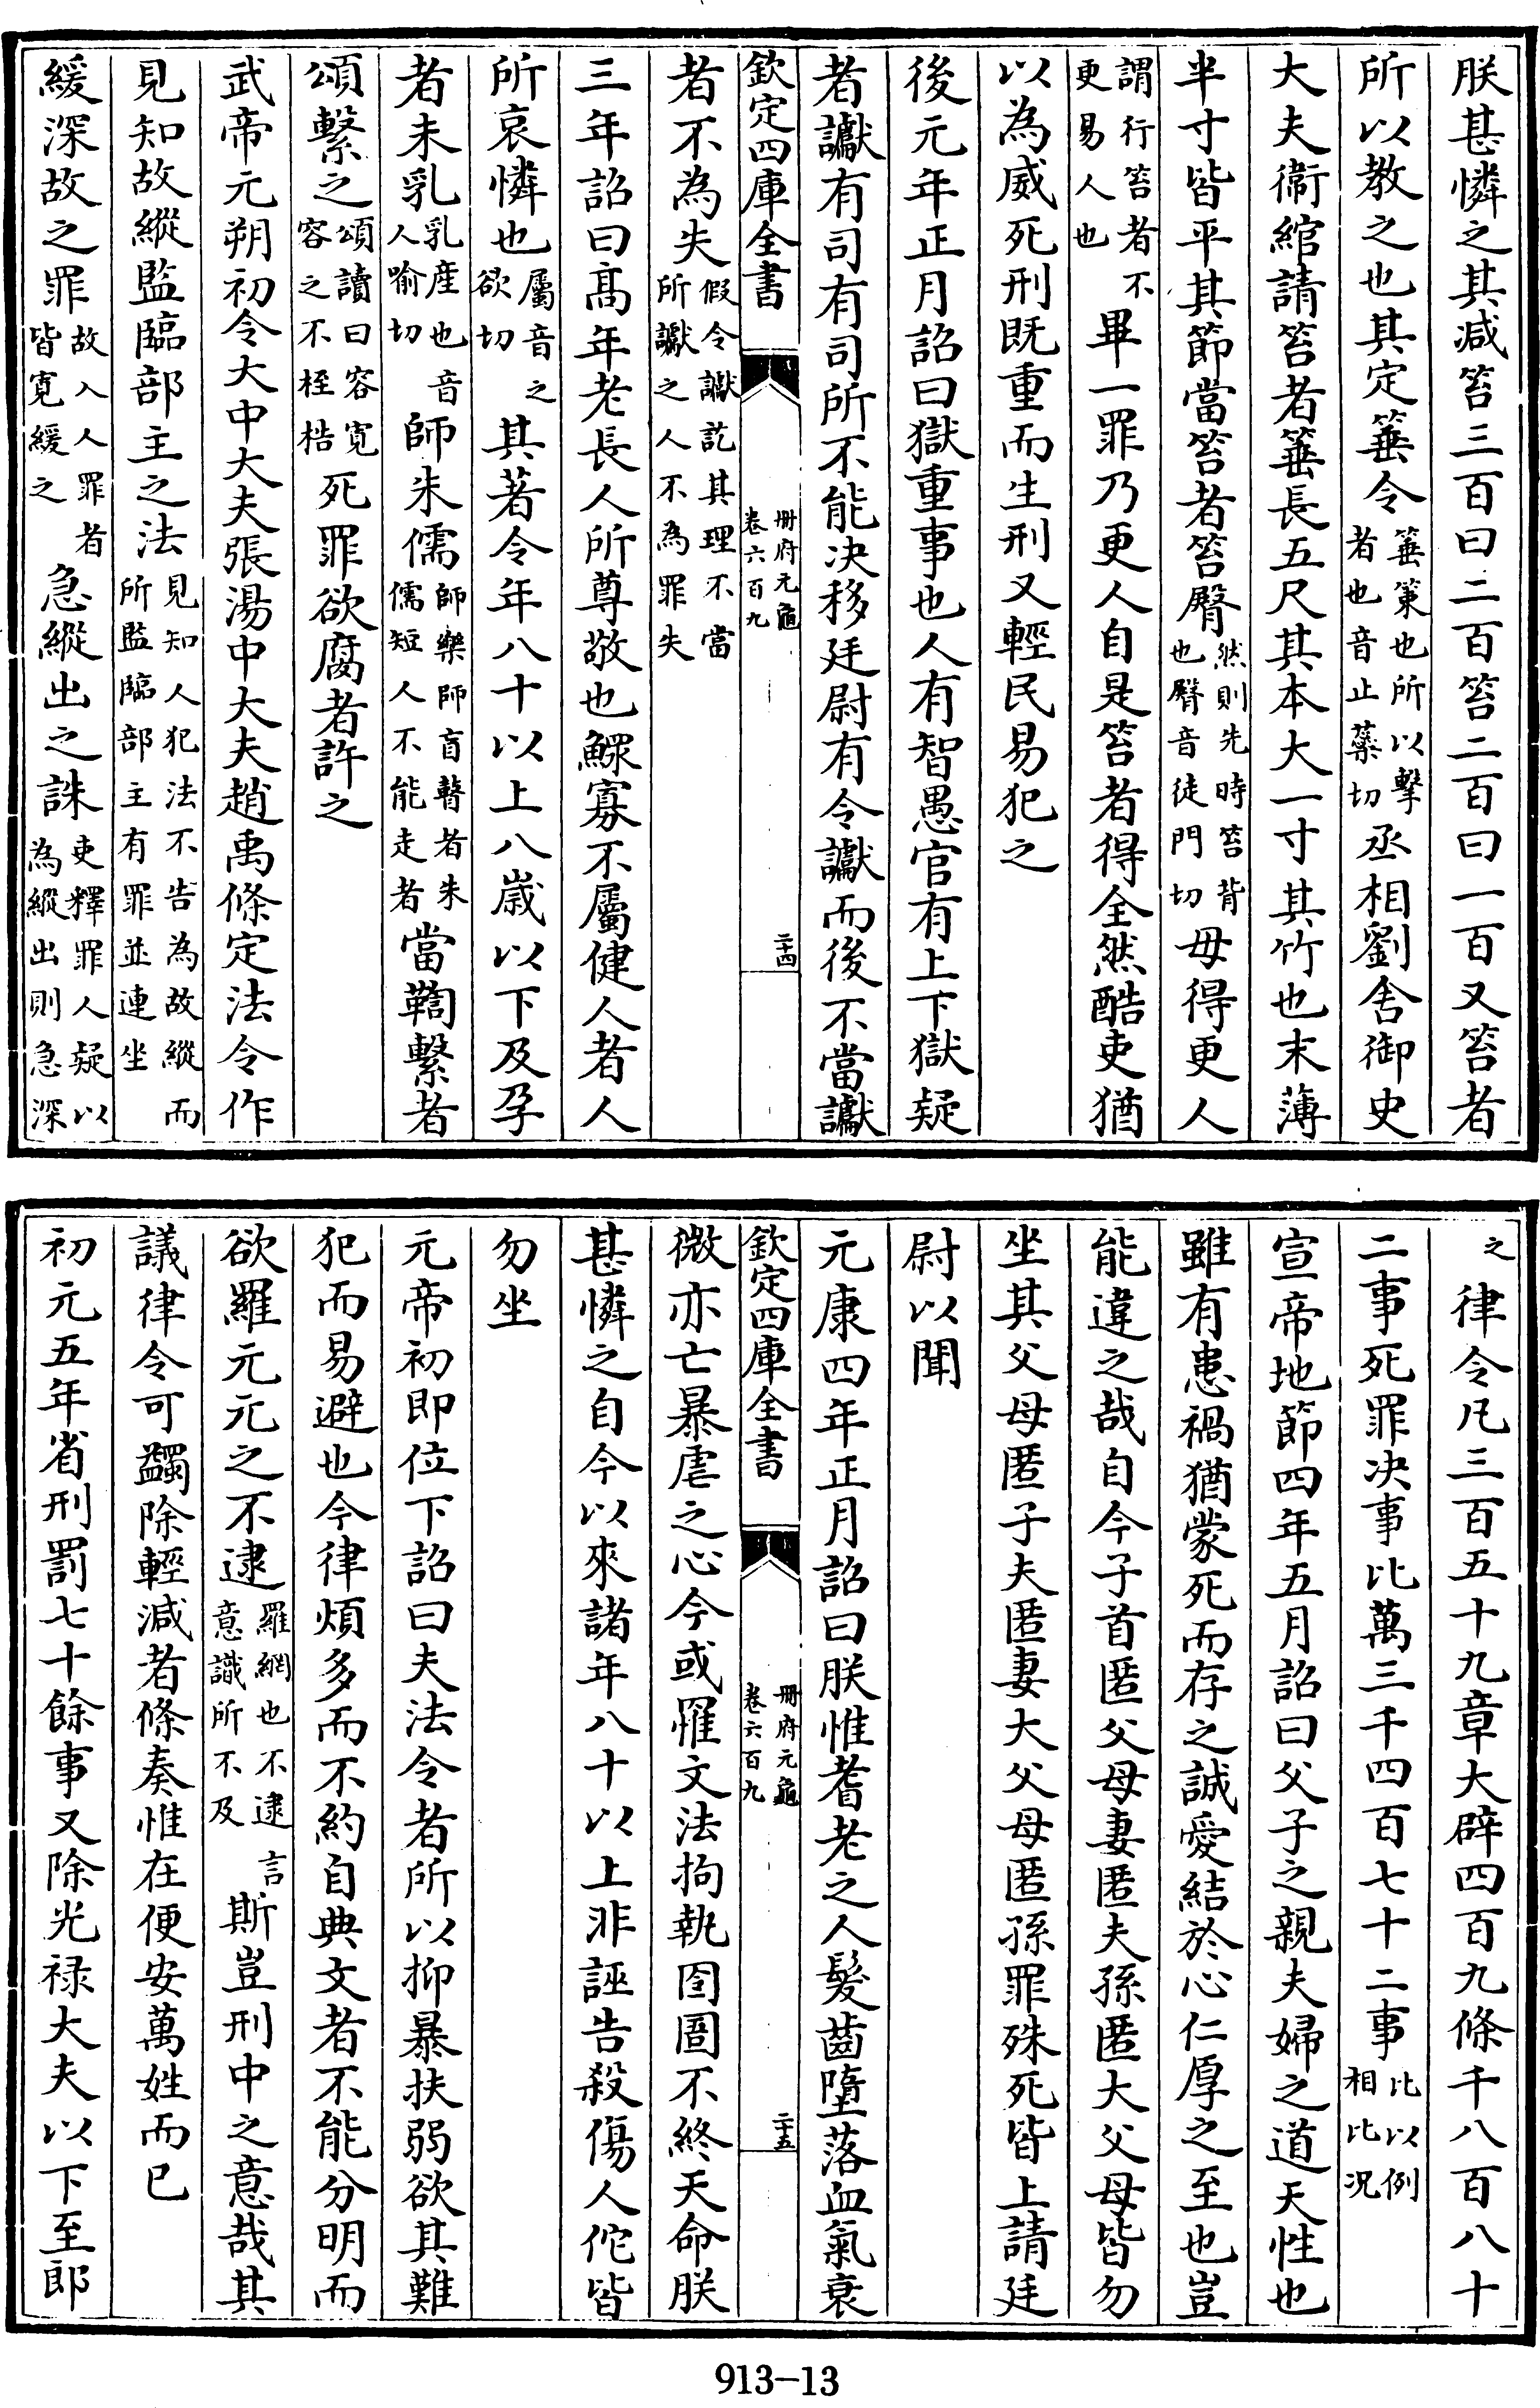 朕甚憐之其減笞三百曰二百笞二百曰一百又笞者
所以教之也其定箠令箠䇿也所以擊者也音止蘂切丞相劉舍御史
大夫衞綰請笞者箠長五尺其本大一寸其竹也末薄
半寸皆平其節當笞者笞臀然則先時笞背也臀音徒門切毋得更人
謂行笞者不更易人也畢一罪乃更人自是笞者得全然酷吏猶
以為威死刑既重而生刑又輕民易犯之
後元年正月詔曰獄重事也人有智愚官有上下獄疑
者讞有司有司所不能決移廷尉有令讞而後不當讞
欽定四庫全書 冊府元龜卷六百九 二十四
者不為失假令讞訖其理不當所讞之人不為罪失
三年詔曰髙年老長人所尊敬也鰥寡不屬健人者人
所哀憐也屬音之欲切其著令年八十以上八歲以下及孕
者未乳乳産也音人喻切師朱儒師樂師盲瞽者朱儒短人不能走者當鞫繫者
頌繫之頌讀曰容容寛之不桎梏死罪欲腐者許之
武帝元朔初令大中大夫張湯中大夫趙禹條定法令作
見知故縱監臨部主之法見知人犯法不告為故縱而所監臨部主有罪並連坐
緩深故之罪故入人罪者皆寛緩之急縱出之誅吏釋罪人疑以為縱出則急深
之律令凡三百五十九章大辟四百九條千八百八十
二事死罪決事比萬三千四百七十二事比以例相比況
宣帝地節四年五月詔曰父子之親夫婦之道天性也
雖有患禍猶蒙死而存之誠愛結於心仁厚之至也豈
能違之哉自今子首匿父母妻匿夫孫匿大父母皆勿
坐其父母匿子夫匿妻大父母匿孫罪殊死皆上請廷
尉以聞
元康四年正月詔曰朕惟耆老之人髮齒墮落血氣衰
欽定四庫全書 冊府元龜卷六百九 二十五
微亦亡暴虐之心今或罹文法拘執囹圄不終天命朕
甚憐之自今以來諸年八十以上非誣告殺傷人佗皆
勿坐
元帝初即位下詔曰夫法令者所以抑暴扶弱欲其難
犯而易避也今律煩多而不約自典文者不能分明而
欲羅元元之不逮羅網也不逮言意識所不及斯豈刑中之意哉其
議律令可蠲除輕減者條奏惟在便安萬姓而已
初元五年省刑罰七十餘事又除光祿大夫以下至郎
913-13